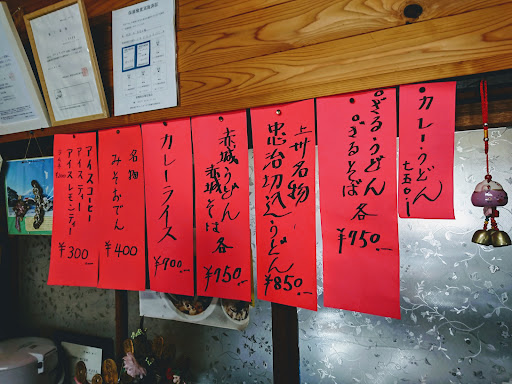 カレーうどん
七五〇.-
ざるうどん
ざるそば
各
¥750.-
上州名物
忠治切込うどん
¥850.-
赤城うどん
赤城そば
各
¥950.-
カレーライス
¥900.-
名物
みそおでん
¥400
アイスコーヒー
アイスティー
アイスレモンティー
¥300.-